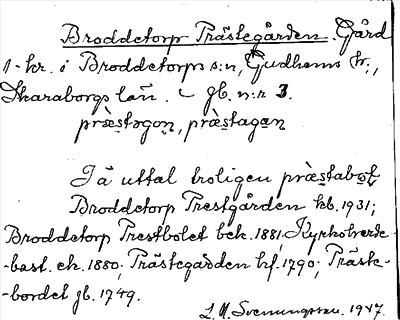 Broddetorp Prästegården. Gård
1-hr. i Broddetorps s:n, Gudhems hr.,
Skaraborgs län. – gb. n:r 3.
præstəgoņ, præstagaņ
I ä uttal troligen præstabol
Broddetorp Prestgården hb. 1931;
Broddetorp Prestbolet bek. 1881; Kyrkoherde-
-bost. ek. 1880; Prästegården hf. 1790; Präste-
-bordet gb. 1749.
1947.